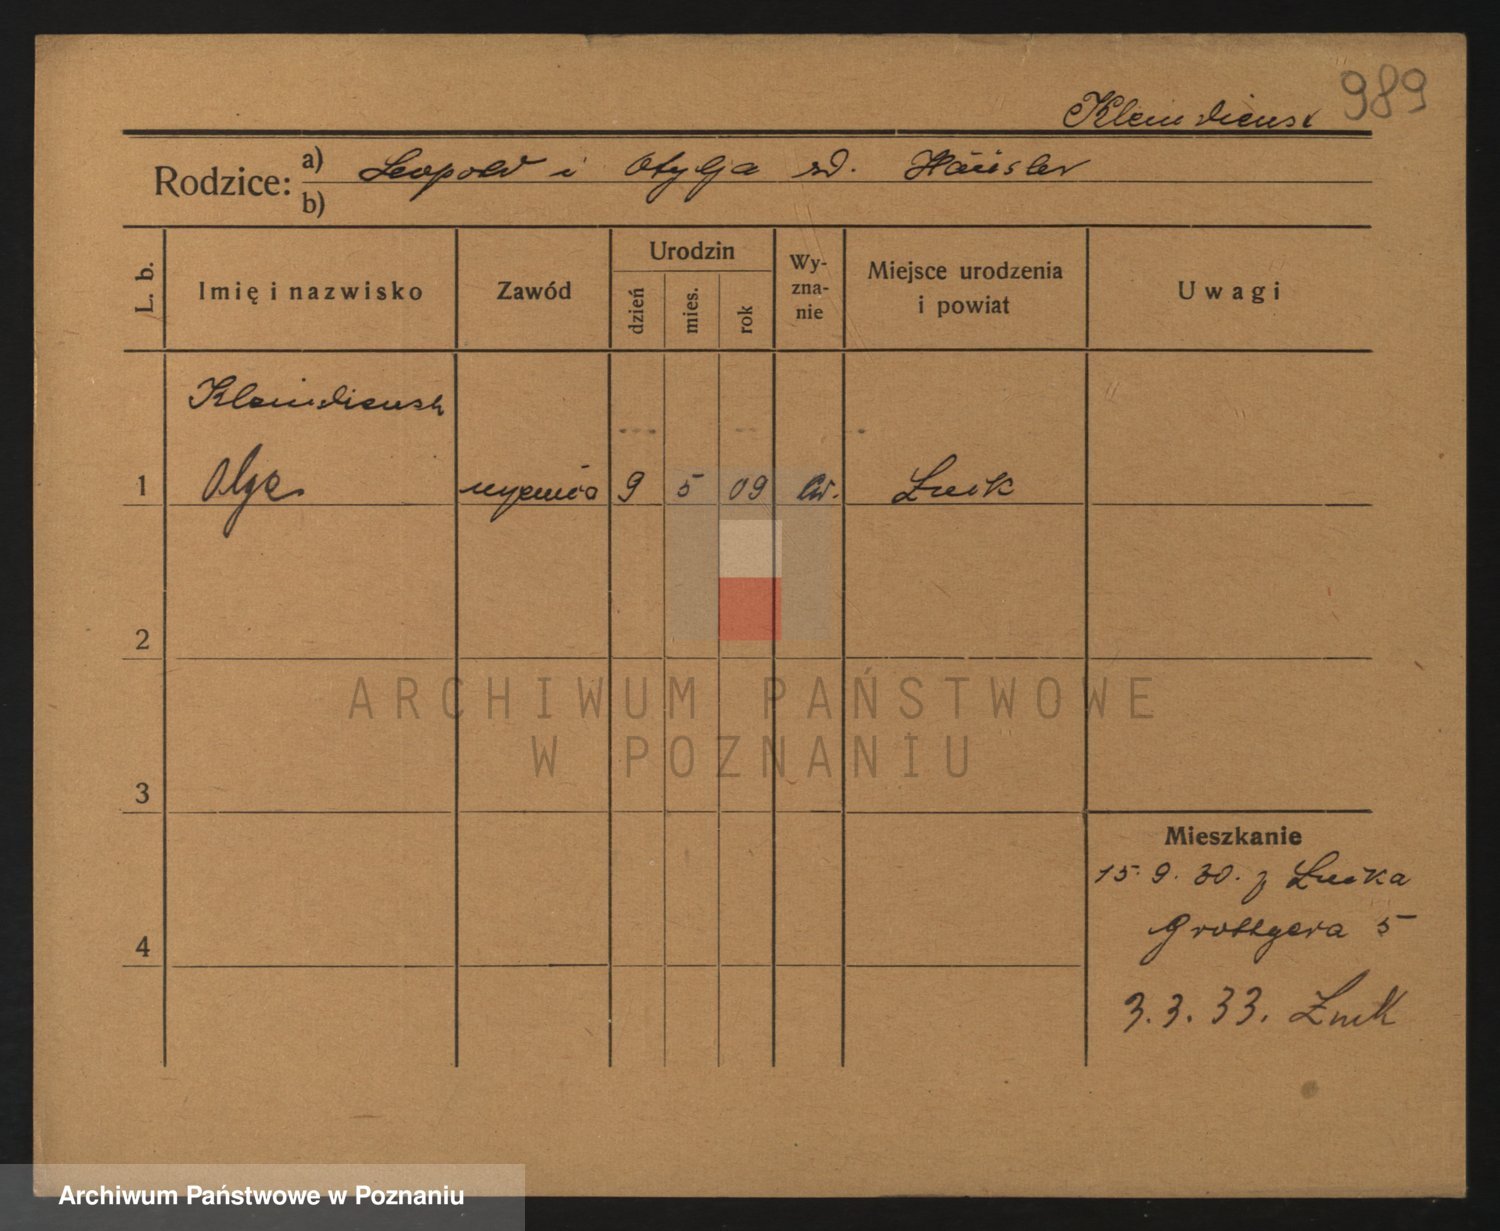 989
Kleindienst
Rodzice: a) Leopold i Otylja zd. Häusler
b)
L. b.
Imię i nazwisko
Zawód
Urodzin
dzień
mies.
rok
Wy-
zna-
nie
Miejsce urodzenia
i powiat
Uwagi
Kleindienst
1 Olga 9 5 09 ew. Łuck
2
3
4
Mieszkanie
15. 9. 30. z Łucka
Grottgera 5
3. 3. 33. Łuck
ARCHIWUM PAŃSTWOWE
W POZNANIU
Archiwum Państwowe w Poznaniu